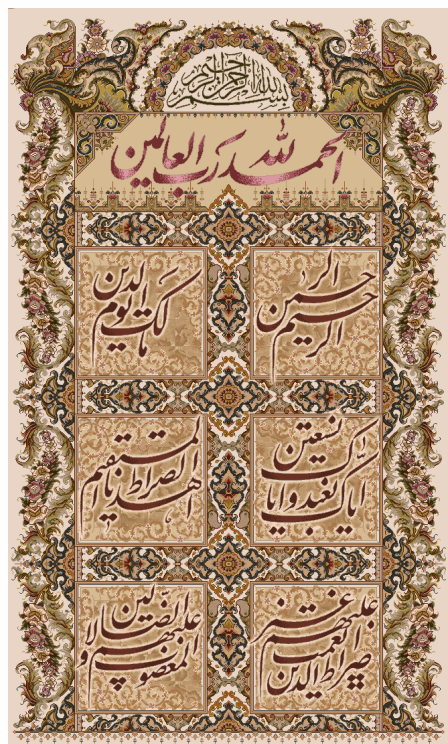 بسم الله الرحمن الرحيم
الحمد لله رب العالمین
الرحمن الرحیم
مالک یوم الدین
ایاک نعبد و ایاک نستعین
اهدنا الصراط المستقیم
صراط الذین انعمت علیهم غیر
المغضوب علیهم ولا الضالین